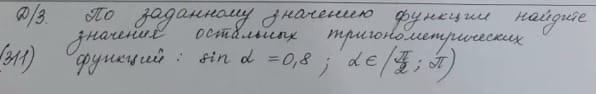 Д/З. По заданному значению функции найдите
значения остальных тригонометрических
(311) функций : sin α = 0,8 ; α ∈ (π/2 ; π)